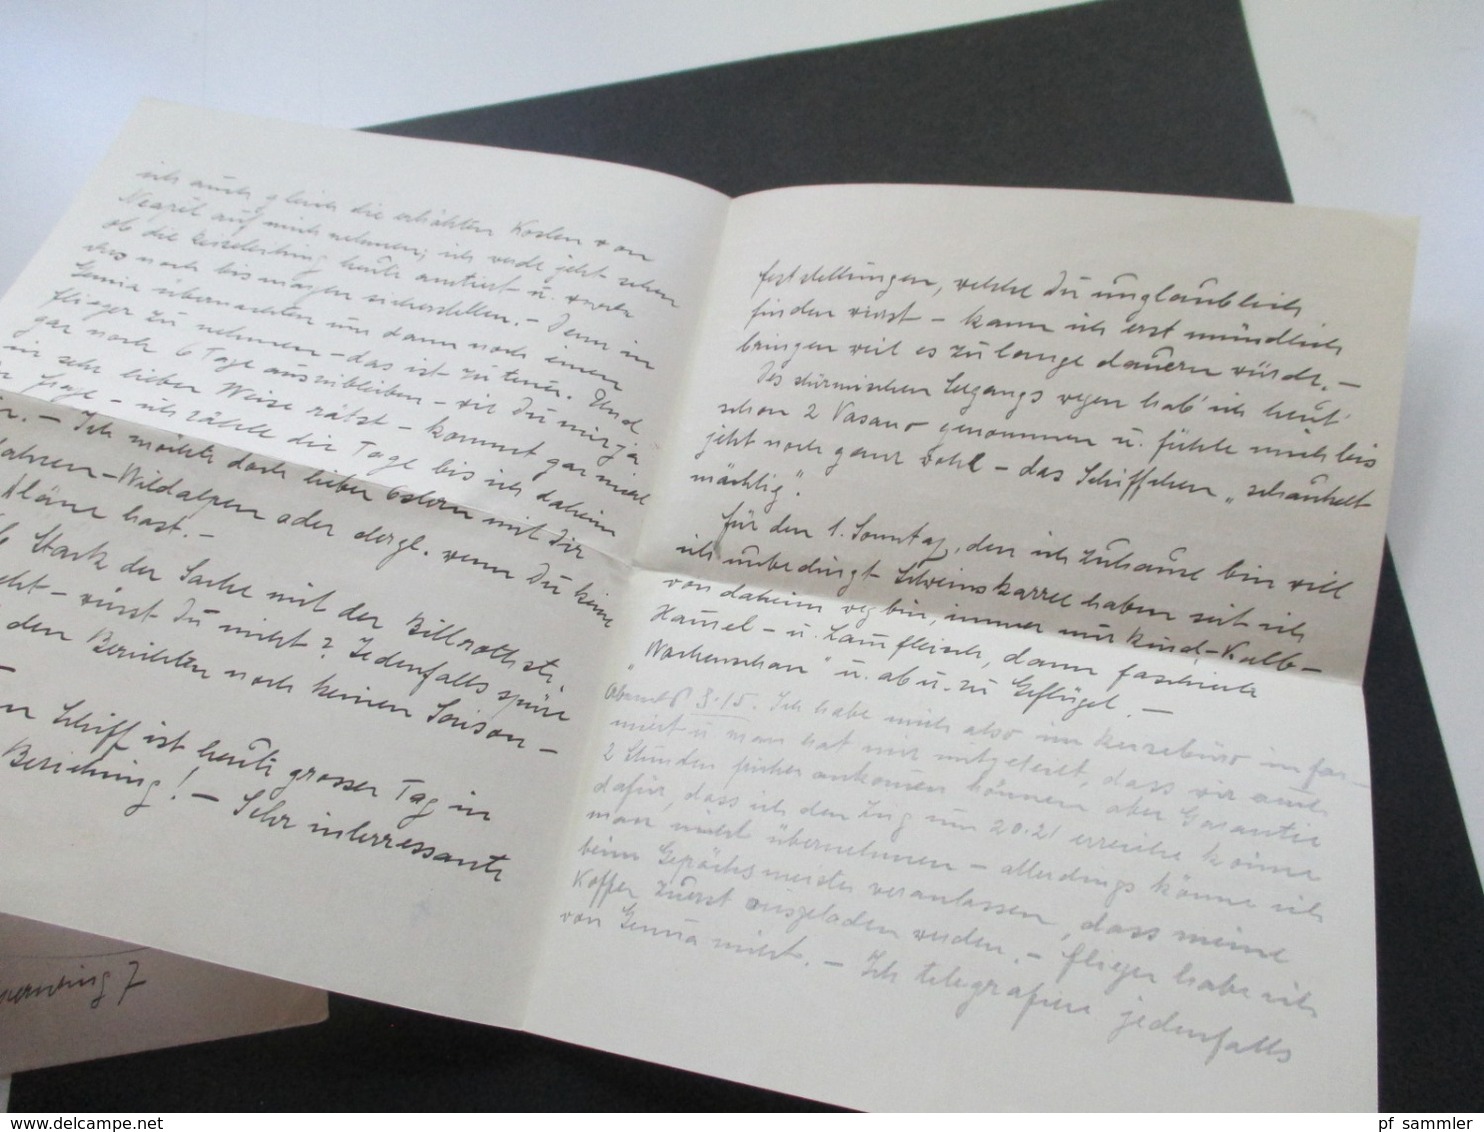 ich auch gleich die erhöhten Kosten von
auf mich nehmen; ich werde jetzt sehen
ob die Reiseleitung heute amtiert u. mich
das noch bis morgen sicherstellen. – Denn in
Genua übernachten und dann noch einen
Flieger zu nehmen – das ist zu teuer. Und
gar noch 6 Tage auszubleiben – wie Du mir ja
in sehr lieber Weise rätst – kommt gar nicht
Frage – ich zähle die Tage bis ich daheim
bin. – Ich möchte doch lieber Ostern mit Dir
fahren – Wildalpen oder dergl. wenn Du keine
Pläne hast. –
Stark der Sache mit der Billrothstr.
– wirst Du nicht? Jedenfalls spüre
den Berichten noch keinen Saison –
–
Schiff ist heute grosser Tag in
Beziehung! – Sehr interessante
Feststellungen, welche Du unglaublich
finden wirst – kann ich erst mündlich
bringen weil es zu lange dauern würde. –
Des stürmischen Seegangs wegen hab' ich heut'
schon 2 Vasano genommen u. fühle mich bis
jetzt noch ganz wohl – das Schiffchen „schaukelt
mächtig".
Für den 1. Sonntag, den ich zuhause bin will
ich unbedingt Schweinskarree haben seit ich
von daheim weg bin, immer nur Rind-Kalb-
Hammel- u. Lammfleisch, dann faschierte
„Wochenschau" u. ab u. zu Geflügel. –
Abends 3.15. Ich habe mich also im Reisebüro infor-
miert u. man hat mir mitgeteilt, dass wir auch
2 Stunden früher ankommen können aber Garantie
dafür, dass ich den Zug um 20.21 erreiche könne
man nicht übernehmen – allerdings könne ich
beim Gepäcksmeister veranlassen, dass meine
Koffer zuerst ausgeladen werden. – Flieger habe ich
von Genua nicht. – Ich telegrafiere jedenfalls
7
pf_sammler